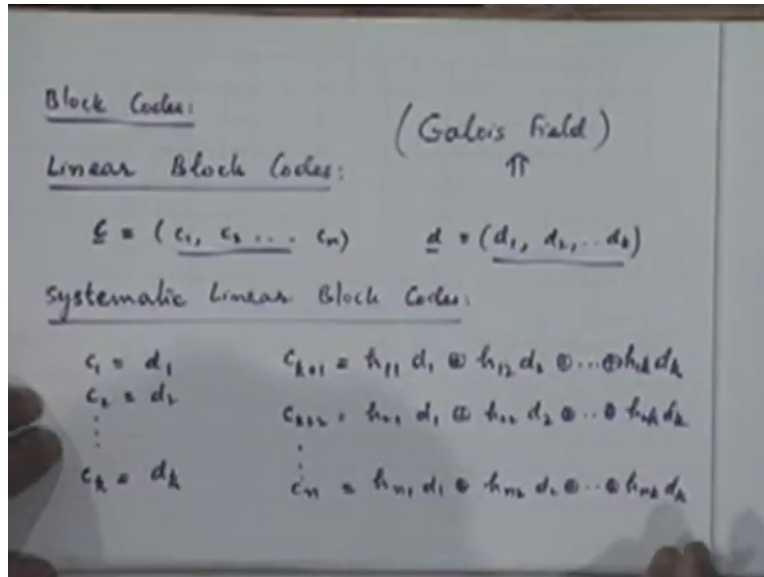 Block Codes:
(Galois Field)
Linear Block Codes:
⇑
c = (c₁, c₂ .... cₙ) d = (d₁, d₂, .. dₖ)
Systematic Linear Block Codes:
c₁ = d₁ cₖ₊₁ = h₁₁ d₁ ⊕ h₁₂ d₂ ⊕ ... ⊕ h₁ₖ dₖ
c₂ = d₂ cₖ₊₂ = h₂₁ d₁ ⊕ h₂₂ d₂ ⊕ .. ⊕ h₂ₖ dₖ
⋮ ⋮
cₖ = dₖ cₙ = hₘ₁ d₁ ⊕ hₘ₂ d₂ ⊕ .. ⊕ hₘₖ dₖ